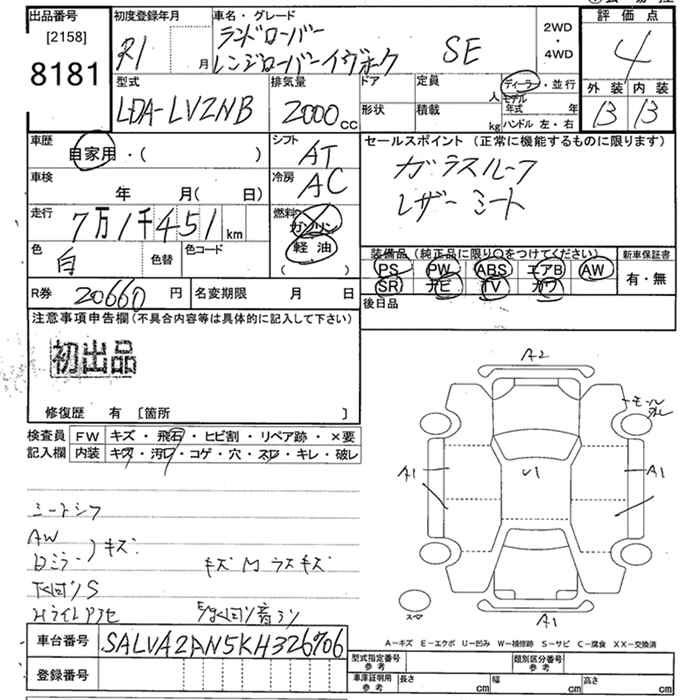 出品番号 初度登録年月 車名・グレード 評価点
[2158] ランドローバー 2WD
8181 R1 月 レンジローバーイヴォーク SE ・ 4WD 4
型式 排気量 ドア 定員 ディーラー・並行 外装 内装
LDA-LV2NB 2000cc 人 モデル年式 年 B B
形状 積載 kg ハンドル 左・右
車歴 シフト セールスポイント (正常に機能するものに限ります)
自家用・( ) AT ガラスルーフ
車検 冷房 レザーシート
年 月( 日) AC
走行 7万1千451km 燃料 ガソリン
軽油
( )
色 白 色替 色コード
装備品 (純正品に限り○をつけてください) 新車保証書
PS PW ABS エアB AW 有・無
SR ナビ TV カワ
R券 20660円 名変期限 月 日 後日品
注意事項申告欄(不具合内容等は具体的に記入して下さい)
初出品
修復歴 有 [箇所 ]
検査員 FW キズ・飛石・ヒビ割・リペア跡・×要
記入欄 内装 キズ・汚レ・コゲ・穴・スレ・キレ・破レ
A2
モール
A1 U1 A1
A1
AW
キズ
キズ
A-キズ E-エクボ U-凹み W-補修跡 S-サビ C-腐食 XX-交換済
車台番号 SALVA2AN5KH326706
登録番号
型式指定番号 参考 類別区分番号 参考
車庫証明用 参考 長さ cm 幅 cm 高さ cm